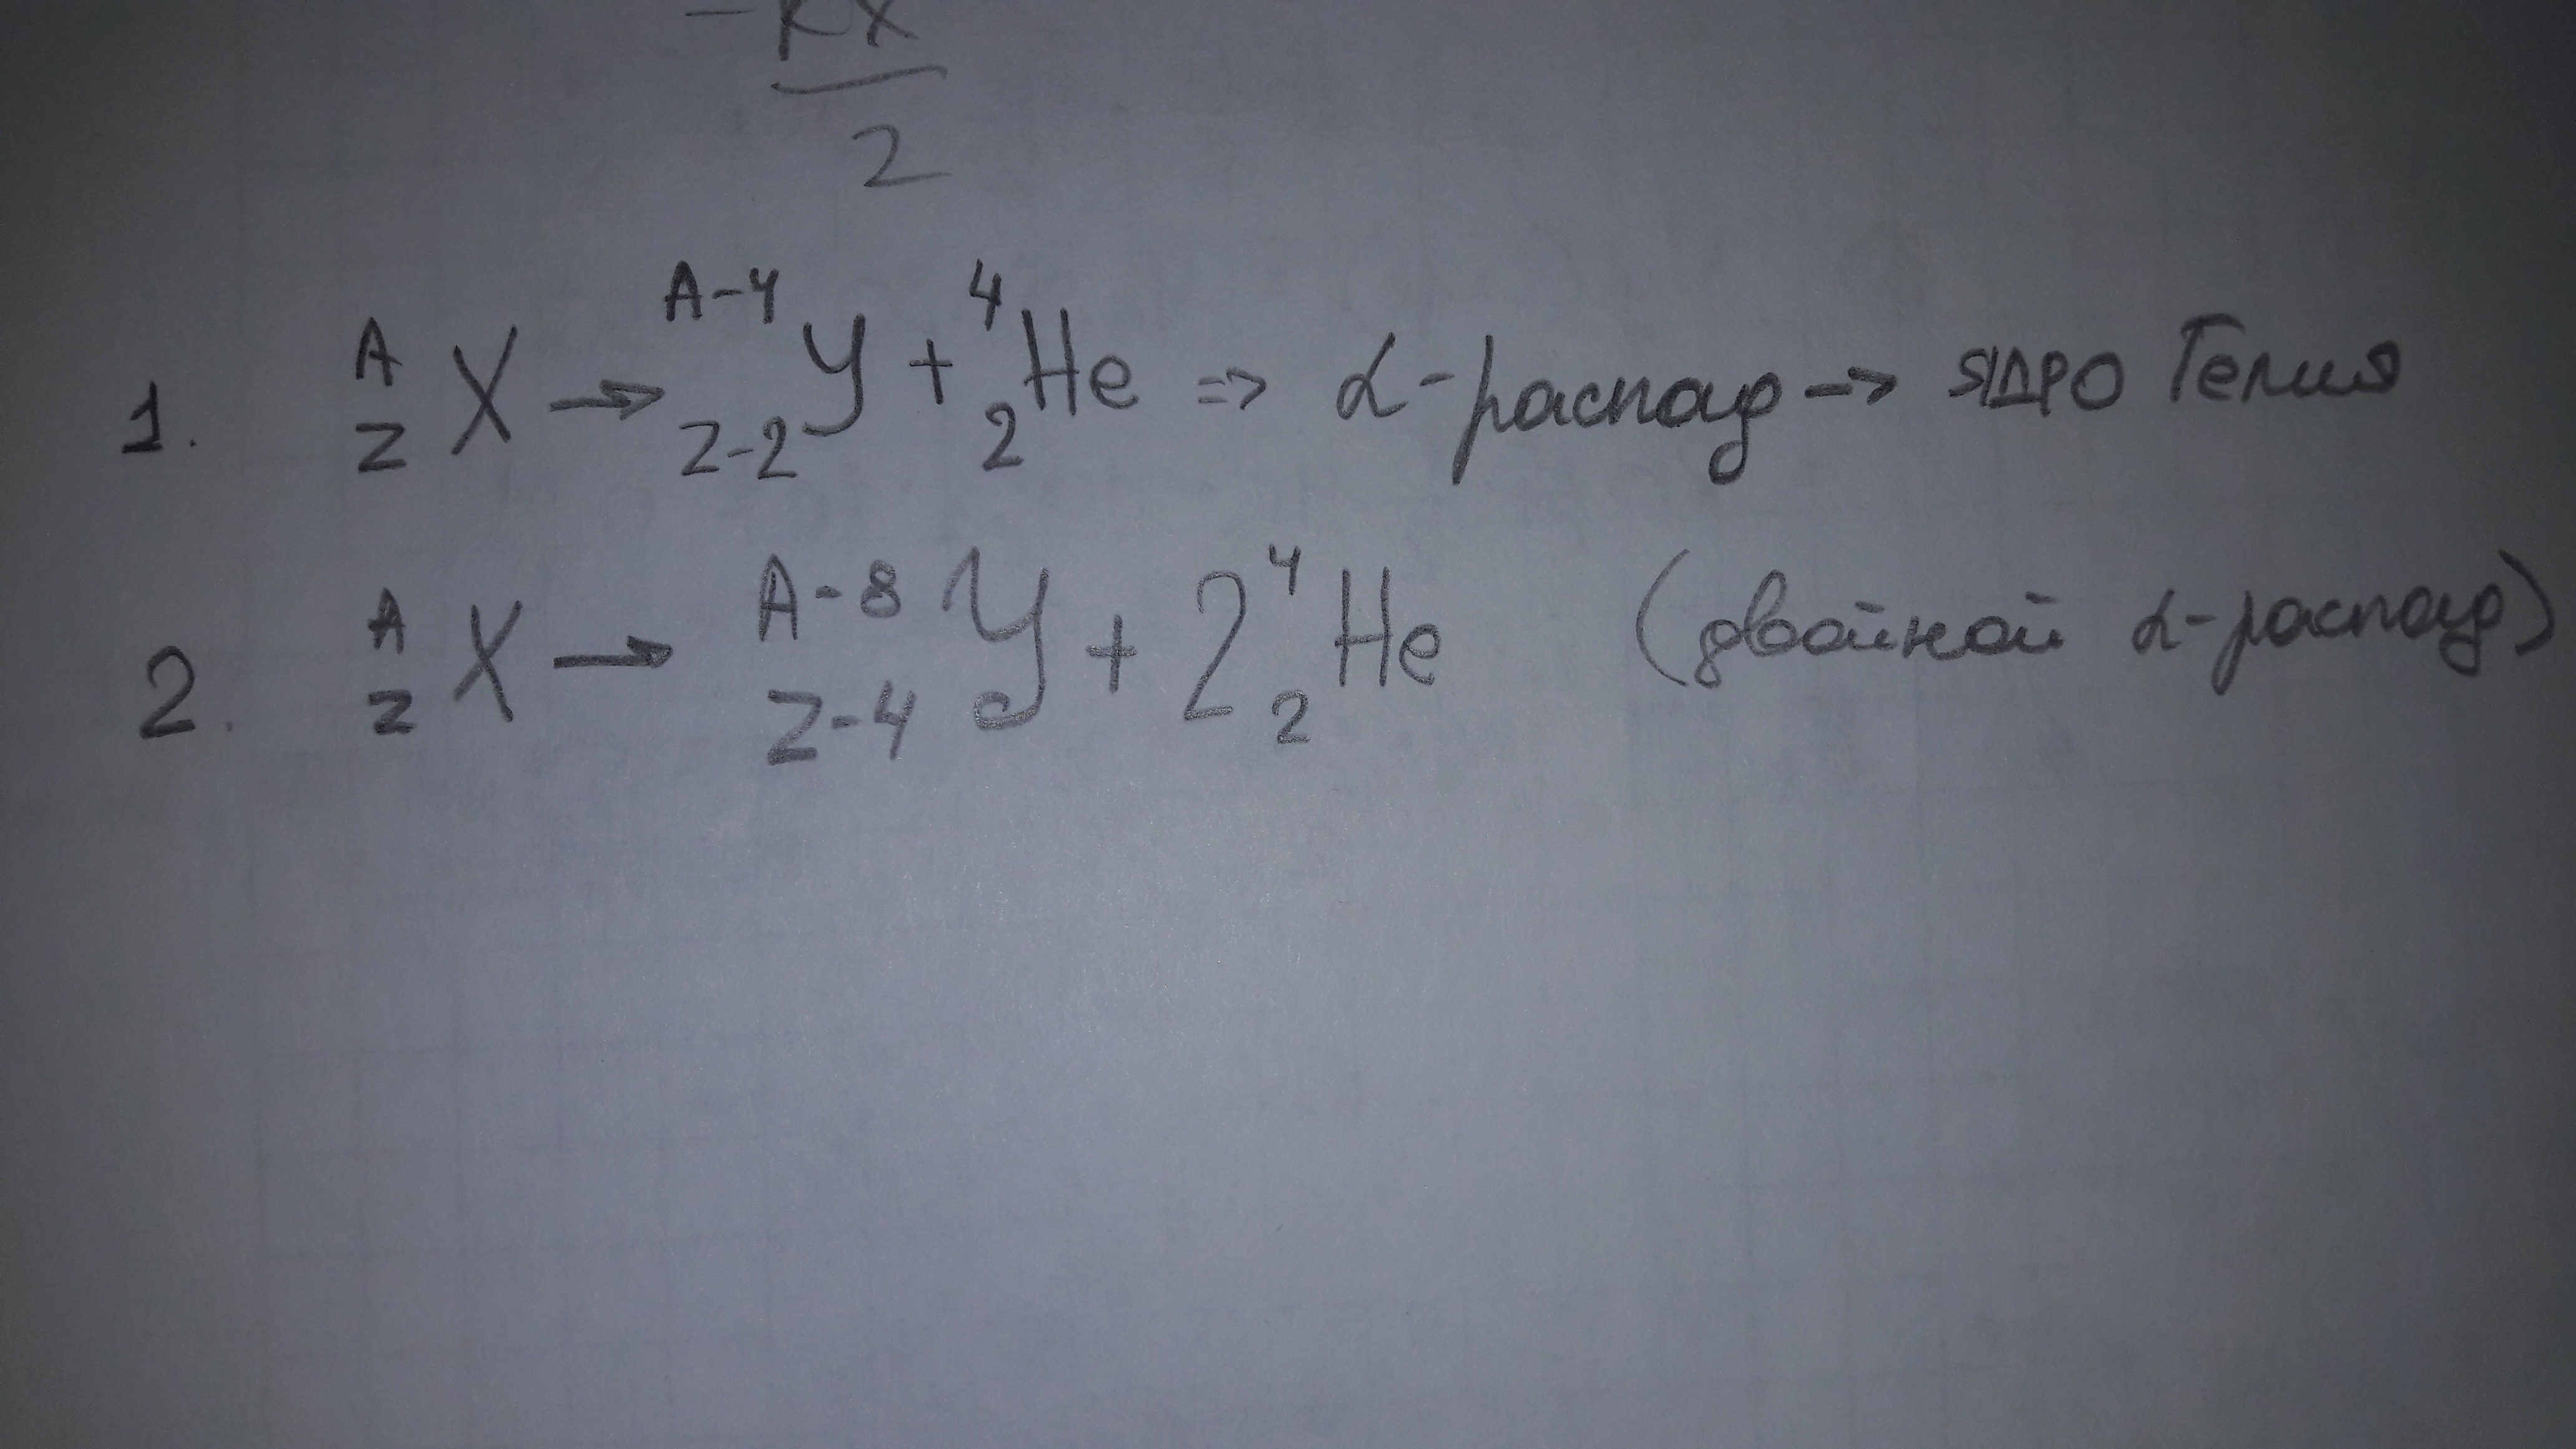 - kx
2
1. A Z X → A-4 Z-2 Y + 4 2 He => α-распад -> ЯДРО Гелия
2. A Z X → A-8 Z-4 Y + 2 4 2 He (двойной α-распад)